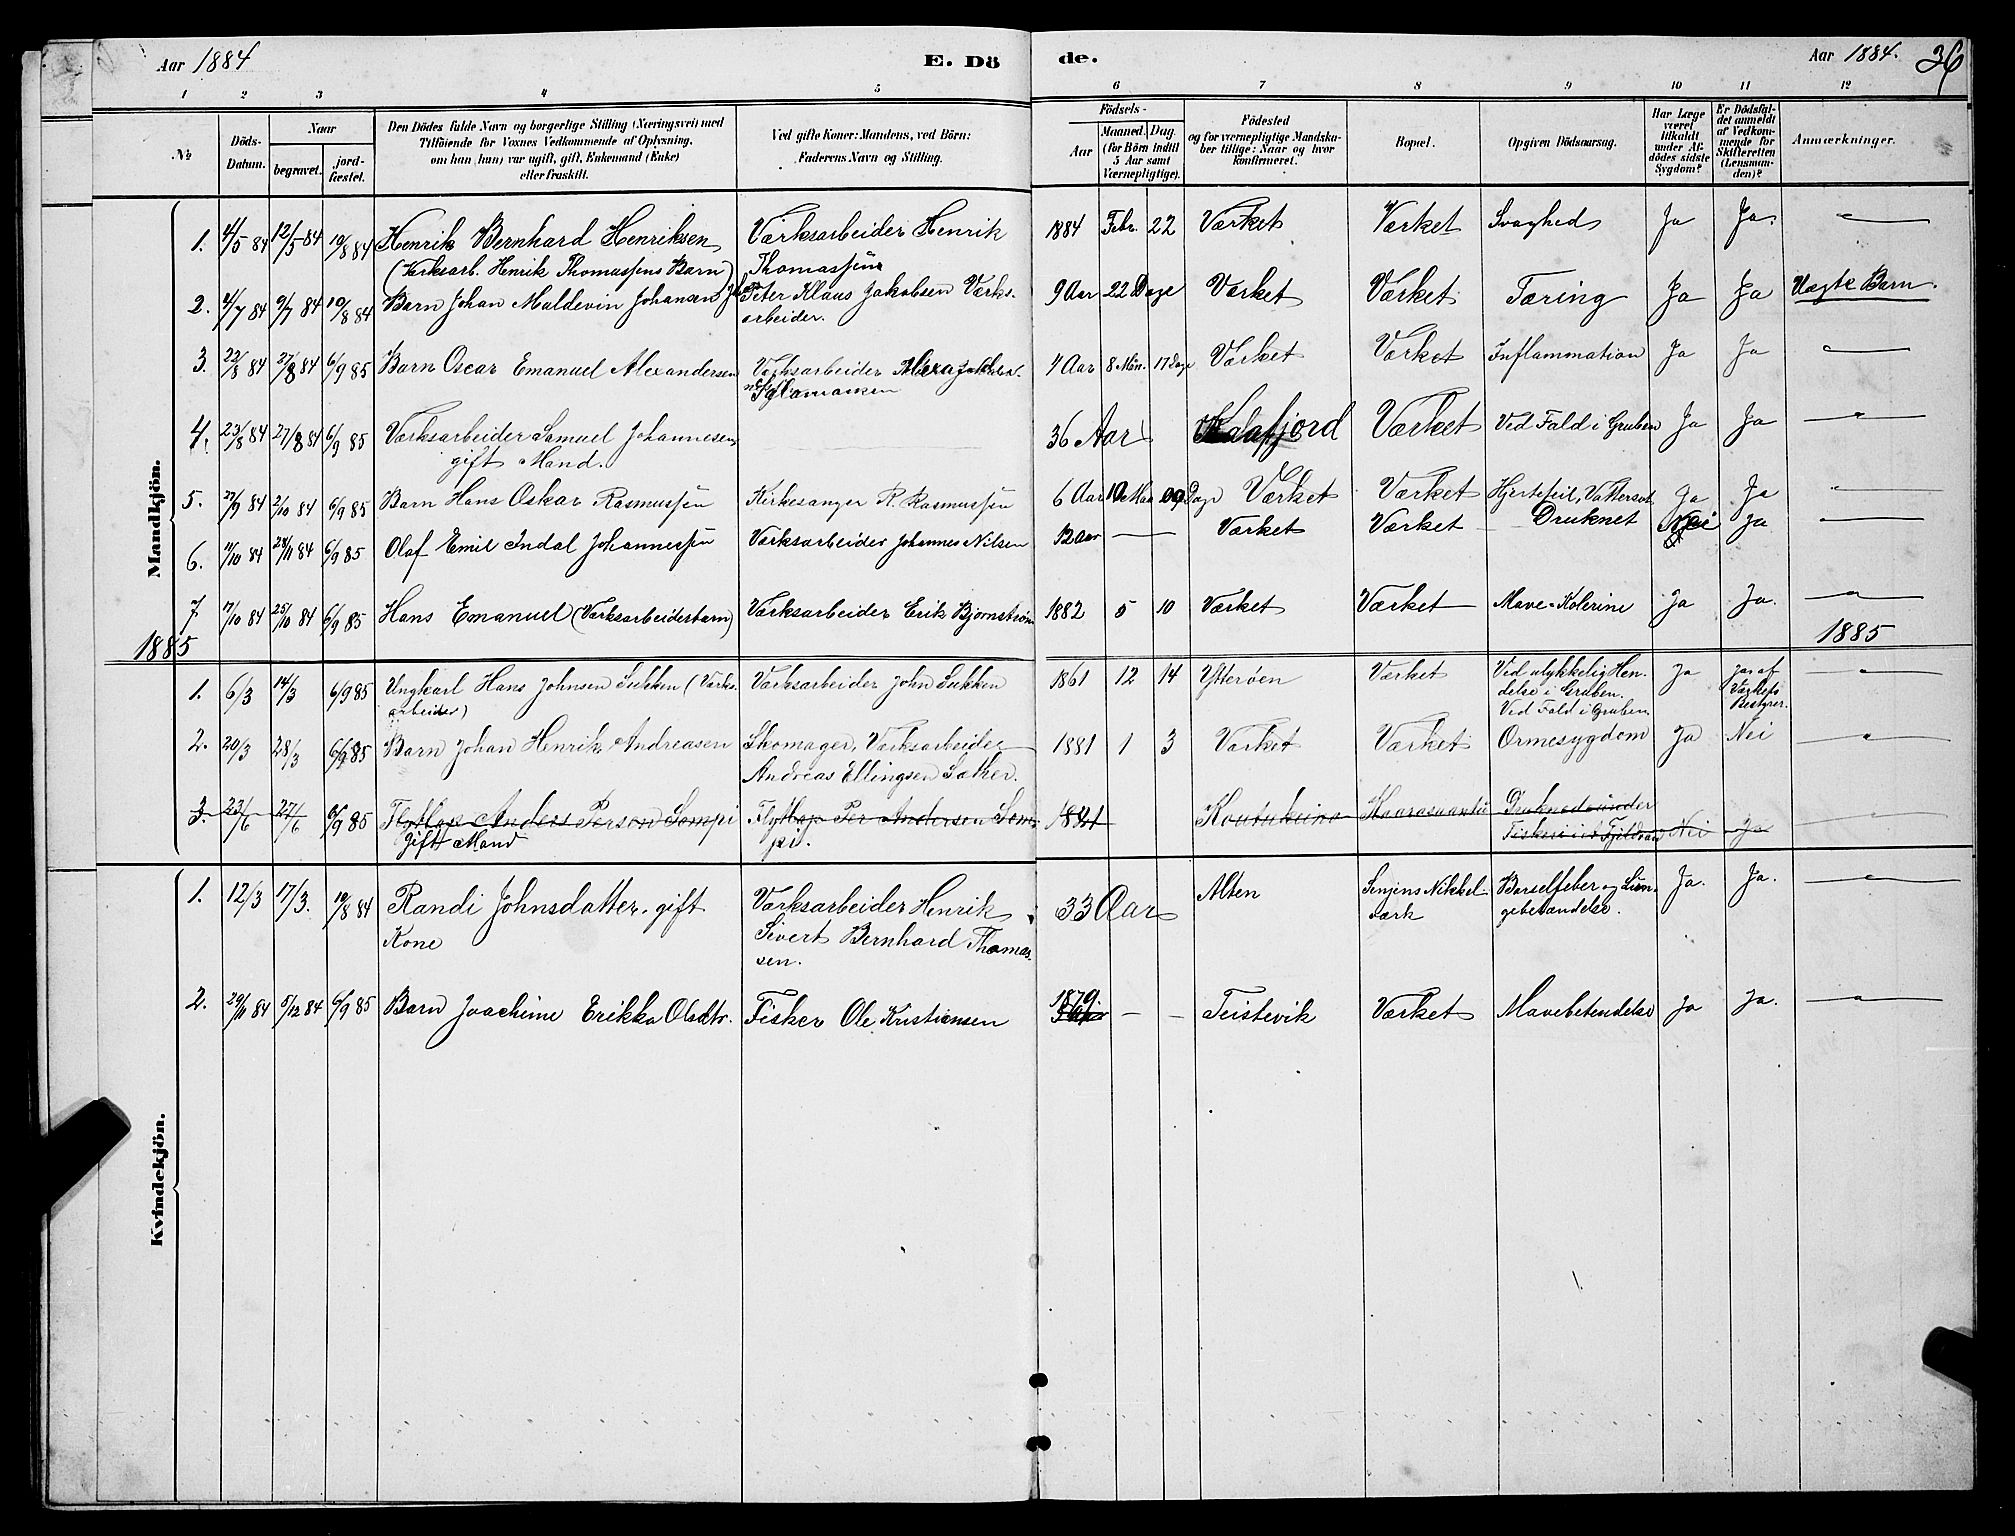 Aar 1884
E. Dö
de.
Aar 1884.
36
1 2 3 4 5 6 7 8 9 10 11 12
№
Döds-
Datum.
Naar
begravet.
jord-
fæstet.
Den Dödes fulde Navn og borgerlige Stilling (Næringsvei) med
Tilföiende for Voxnes Vedkommende af Oplysning,
om han (hun) var ugift, gift, Enkemand (Enke)
eller fraskilt.
Ved gifte Koner: Mandens, ved Börn:
Faderens Navn og Stilling.
Födsels-
Aar
Maaned. Dag.
(for Börn indtil
5 Aar samt
Værnepligtige).
Födested
og for værnepligtige Mandska-
ber tillige: Naar og hvor
konfirmeret.
Bopæl.
Opgiven Dödsaarsag.
Har Læge
været
tilkaldt
under Af-
dödes sidste
Sygdom?
Er Dödsfal-
det anmeldt
af Vedkom-
mende for
Skifteretten
(Lensman-
den)?
Anmærkninger.
Mandkjön.
1. 4/5 84 12/5 84 10/8 84 Henrik Bernhard Henriksen Værksarbeider Henrik 1884 Febr. 22 Værket Værket Svaghed Ja Ja.
(Værksarb. Henrik Thomassens Barn) Thomassen
2. 4/7 84 9/7 84 10/8 84 Barn Johan Maldevin Johansen Peter Klaus Jakobsen Værks- 9 Aar 22 Dage Værket Værket Tæring Ja Ja Uægte Barn.
arbeider.
3. 22/8 84 27/8 84 6/9 85 Barn Oscar Emanuel Alexandersen Værksarbeider 4 Aar 8 Mdn. 17 Dage Værket Værket Inflammation Ja Ja
4. 23/8 84 27/8 84 6/9 85 Værksarbeider Samuel Johannesen 36 Aar Værket Ved Fald i Gruben Ja Ja
gift Mand.
5. 27/9 84 2/10 84 6/9 85 Barn Hans Oskar Rasmussen Kirkesanger R. Rasmussen 6 Aar Dage Værket Værket Hjertefeil, Vattersot Ja Ja
6. 11/10 84 28/11 84 6/9 85 Olaf Emil Indal Johannessen Værksarbeider Johannes Nilsen 12 Aar Værket Værket Druknet Nei Ja
7 17/10 84 25/10 84 6/9 85 Hans Emanuel (Værksarbeiderbarn) Værksarbeider Erik Bjørnstrøm 1882 5 10 Værket Værket Mave-Kolerine Ja Ja.
1885
1885
1. 6/3 14/3 6/9 85 Ungkarl Hans Johnsen Sukken (Værks- Værksarbeider John Sukken 1861 12 14 Ytterøen Værket Ved ulykkelig Hen- Ja Ja af
arbeider) delse i Gruben. Værkets
Ved Fald i Gruben. Bestyrer.
2. 20/3 28/3 6/9 85 Barn Johan Henrik Andreasen Skomager, Værksarbeider 1881 1 3 Værket Værket Ormesygdom Ja Nei
Andreas Ellingsen Sæther.
3. 23/6 27/6 6/9 85 Flytlap Anders Person Sompi Flytlap Per Andersen Som- Koutokeino Druknedeunder
gift Mand pi. Fiskeri i et Fjeldvand Nei Ja
Kvindekjön.
1. 12/3 17/3. 10/8 84 Randi Johnsdatter. gift Værksarbeider Henrik 33 Aar Alten Senjens Nikkel- Barselfeber og Lun- Ja. Ja.
Kone Sivert Bernhard Thomas- værk gebetændelse.
sen.
2. 29/11 84 5/12 84 6/9 85 Barn Joachime Erikka Olsdtr. Fisker Ole Kristiansen 1879. Teistevik Værket Mavebetendelse Ja Ja.